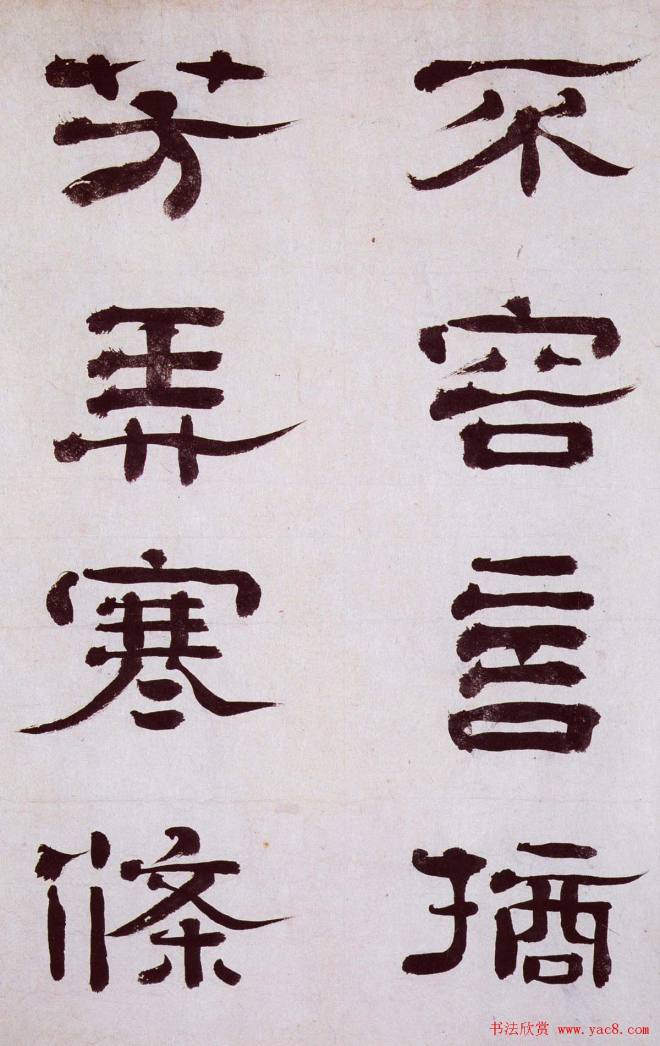 不容言摘
芳弄寒條
书法欣赏 www.yac8.com